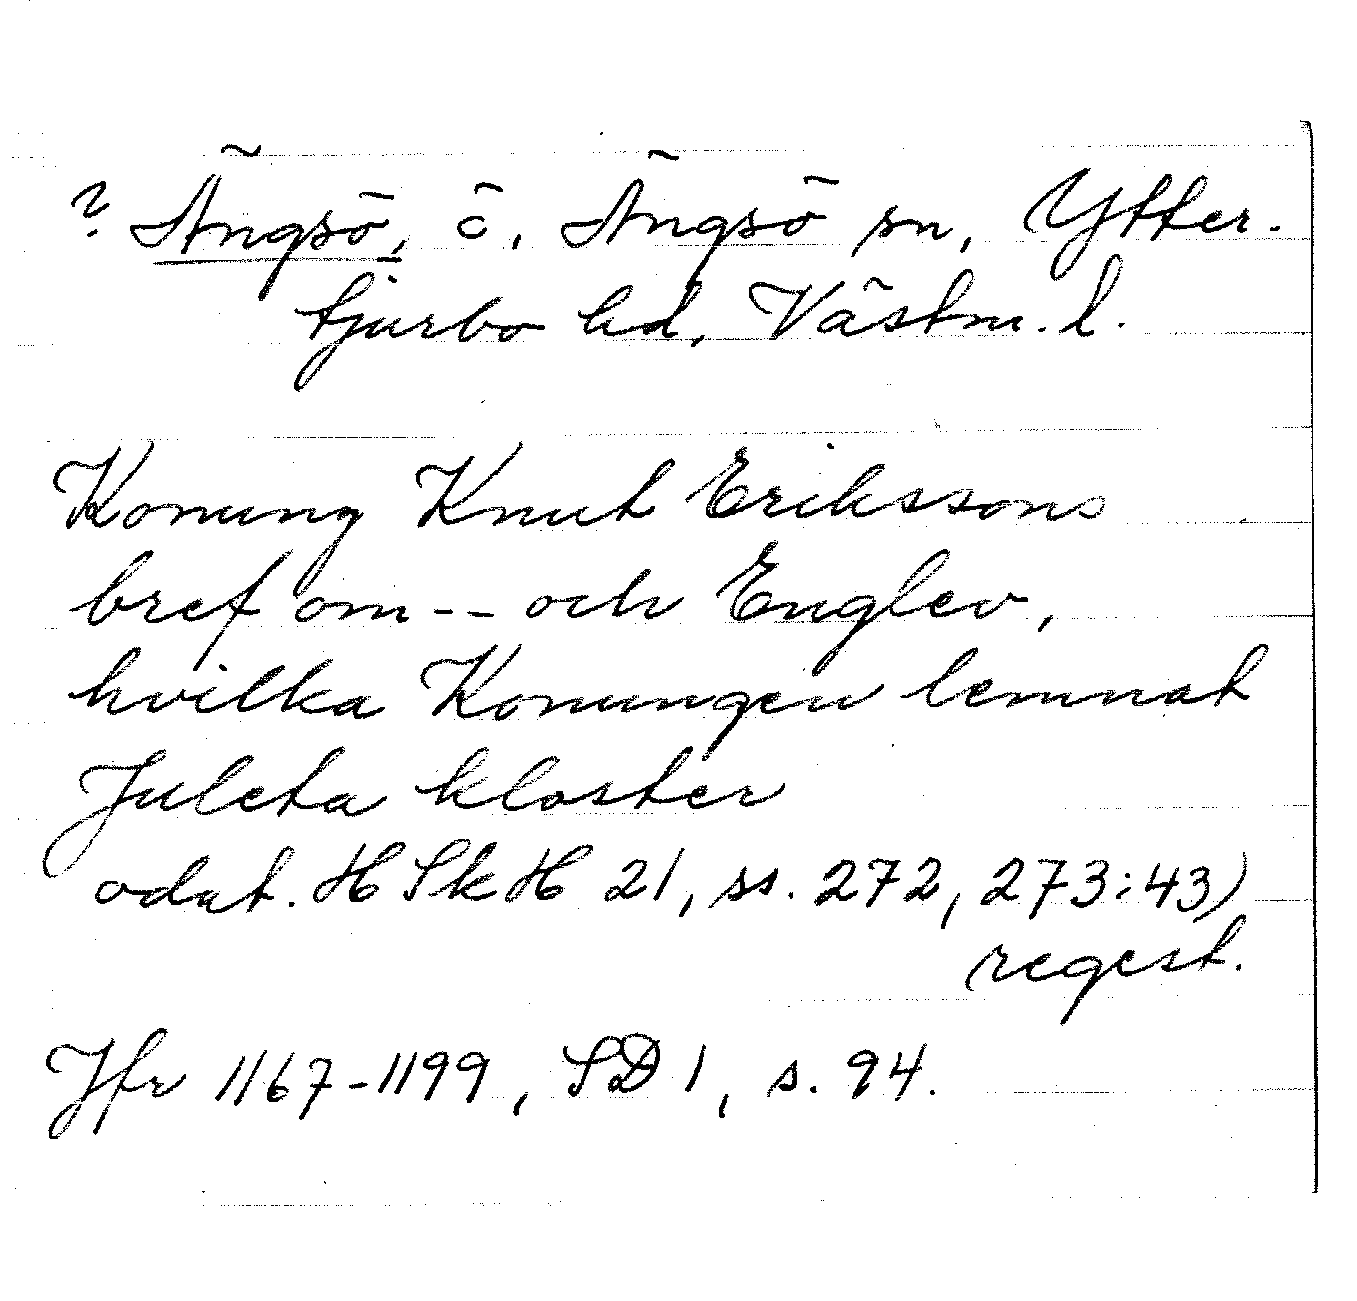 ? Ängsö, ö, Ängsö sn, Ytter-
tjurbo hd, Västm. l.
Konung Knut Erikssons
bref om -- och Englev,
hvilka Konungen lemnat
Juleta kloster
odat. HSkH 21, ss. 272, 273:43)
regest.
Jfr 1167-1199, SD 1, s. 94.